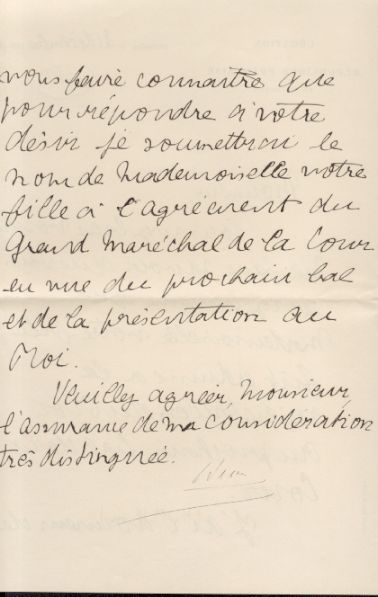 vous faire connaître que
pour répondre à votre
désir je soumettrai le
nom de Mademoiselle votre
fille à l'agrément du
Grand Maréchal de la Cour
en vue du prochain bal
et de la présentation au
Roi.
Veuillez agréer, Monsieur,
l'assurance de ma considération
très distinguée.